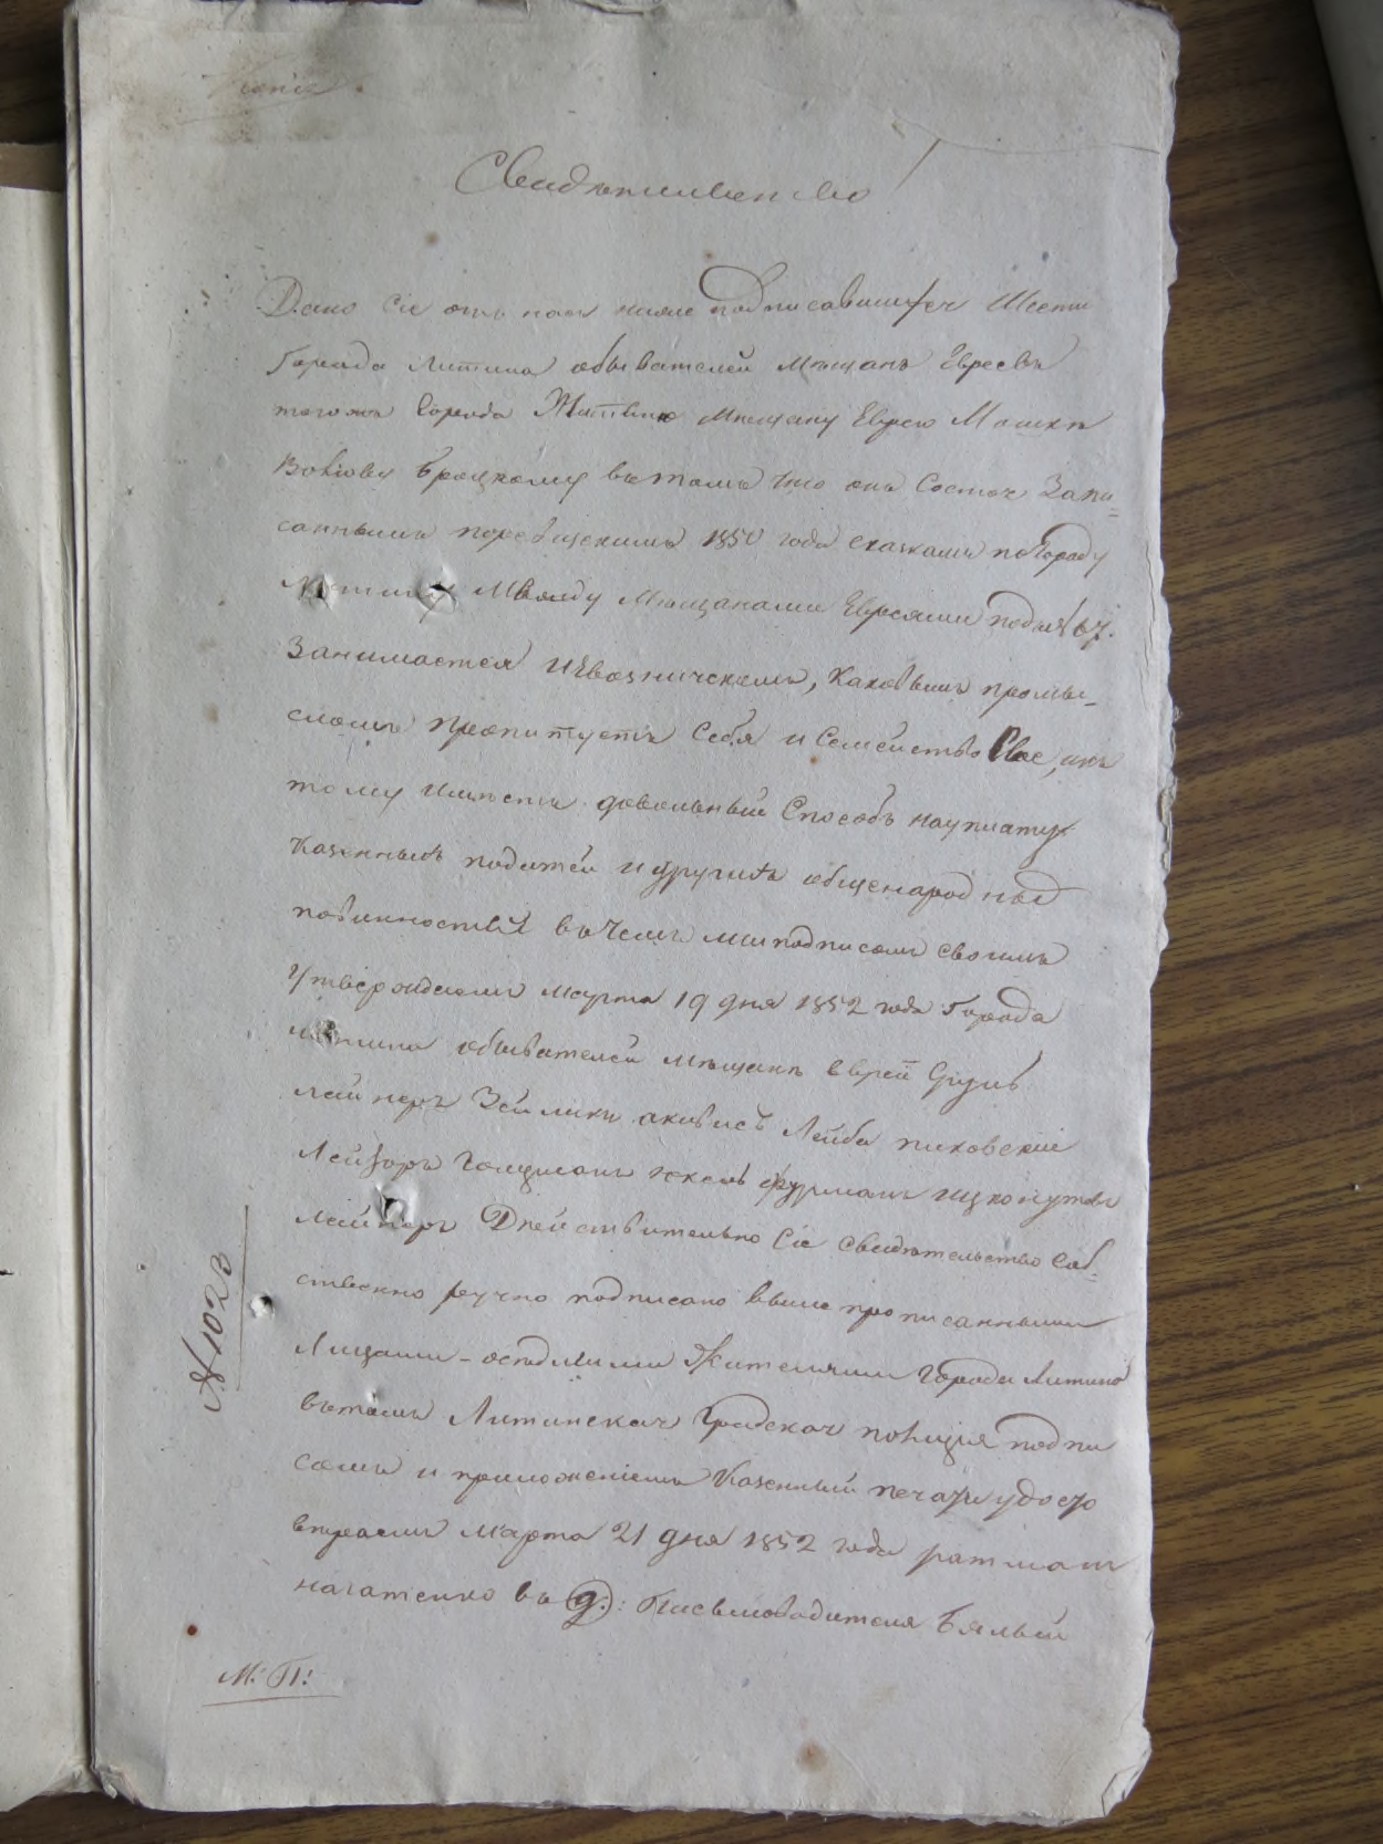 Копія
Свидѣтельство
Дано сіе отъ насъ ниже подписавшихся Шести
Города Литина обывателей Мѣщанъ Евреевъ
тогожъ Города Жителю Мѣщану Еврею Мошкѣ
Вольфову Броцкому въ томъ что онъ Состоя Запи=
саннымъ по ревизскимъ 1850 года сказкамъ по Городу
Литину Между Мѣщанами Евреями подъ № 67.
Занимается Извозничекомъ, Каковымъ промы-
сломъ пропитуетъ Себя и Семейство Свое, икъ
тому имѣетъ довольный Способъ на уплату
Казенныхъ податей и другихъ общенародных
повинностей въ Чемъ ми подписомъ своимъ
Утверждаемъ Марта 19 дня 1852 года Города
Литина обывателей мѣщанъ Еврей
Лейнеръ Зейликъ Лейба пиковскій
Лейзоръ Гольцманъ фурманъ Ицко
Лейнеръ Дѣйствительно Сіе Свидѣтельство Соб=
ственно ручно подписано выше прописанными
Лицами - осѣдлими Жителями Города Литина
въ томъ Литинская Градская полиція подпи
сомъ и приложеніемъ Казенный печати удосто
вѣряетъ Марта 21 дня 1852 года ратманъ
въ д.: Письмоводителя Бялый
№ 1023
М: П: